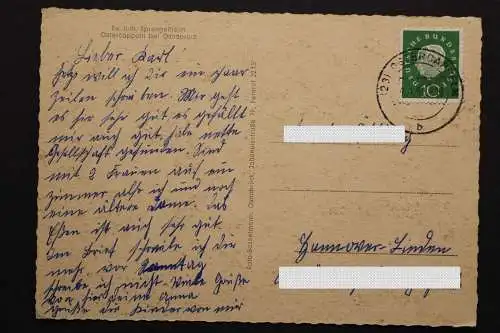 Ev. luth. Sprengelheim
Ostercappeln bei Osnabrück
Lieber Karl!
Jetzt will ich Dir ein paar
Zeilen schreiben. Mir geht
es hir sehr gut es gefällt
mir auch gut, habe nette
Gesellschaft gefunden. Sind
mit 2 Frauen auf ein
Zimmer alt ich und noch
eine ältere Dame. Das
Eßen ist auch sehr gut.
Den Brief schreibe ich dir
mehr vor Samstag
schreibe ich nicht. Viele Grüße
von hier deine Anna
grüße die Kinder von mir
DEUTSCHE BUNDESPOST
10
(23) OSTERCAPPELN
b
Hannover-Linden